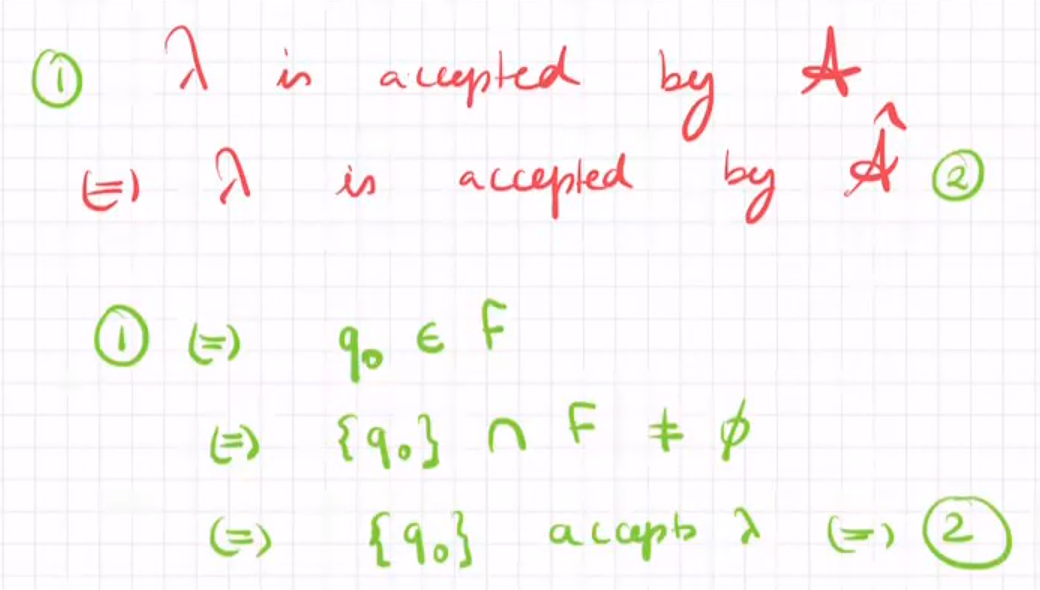 ① λ is accepted by A
(=) λ is accepted by Â ②
① (=) q₀ ∈ F
(=) {q₀} ∩ F ≠ ϕ
(=) {q₀} accepts λ (=) ②